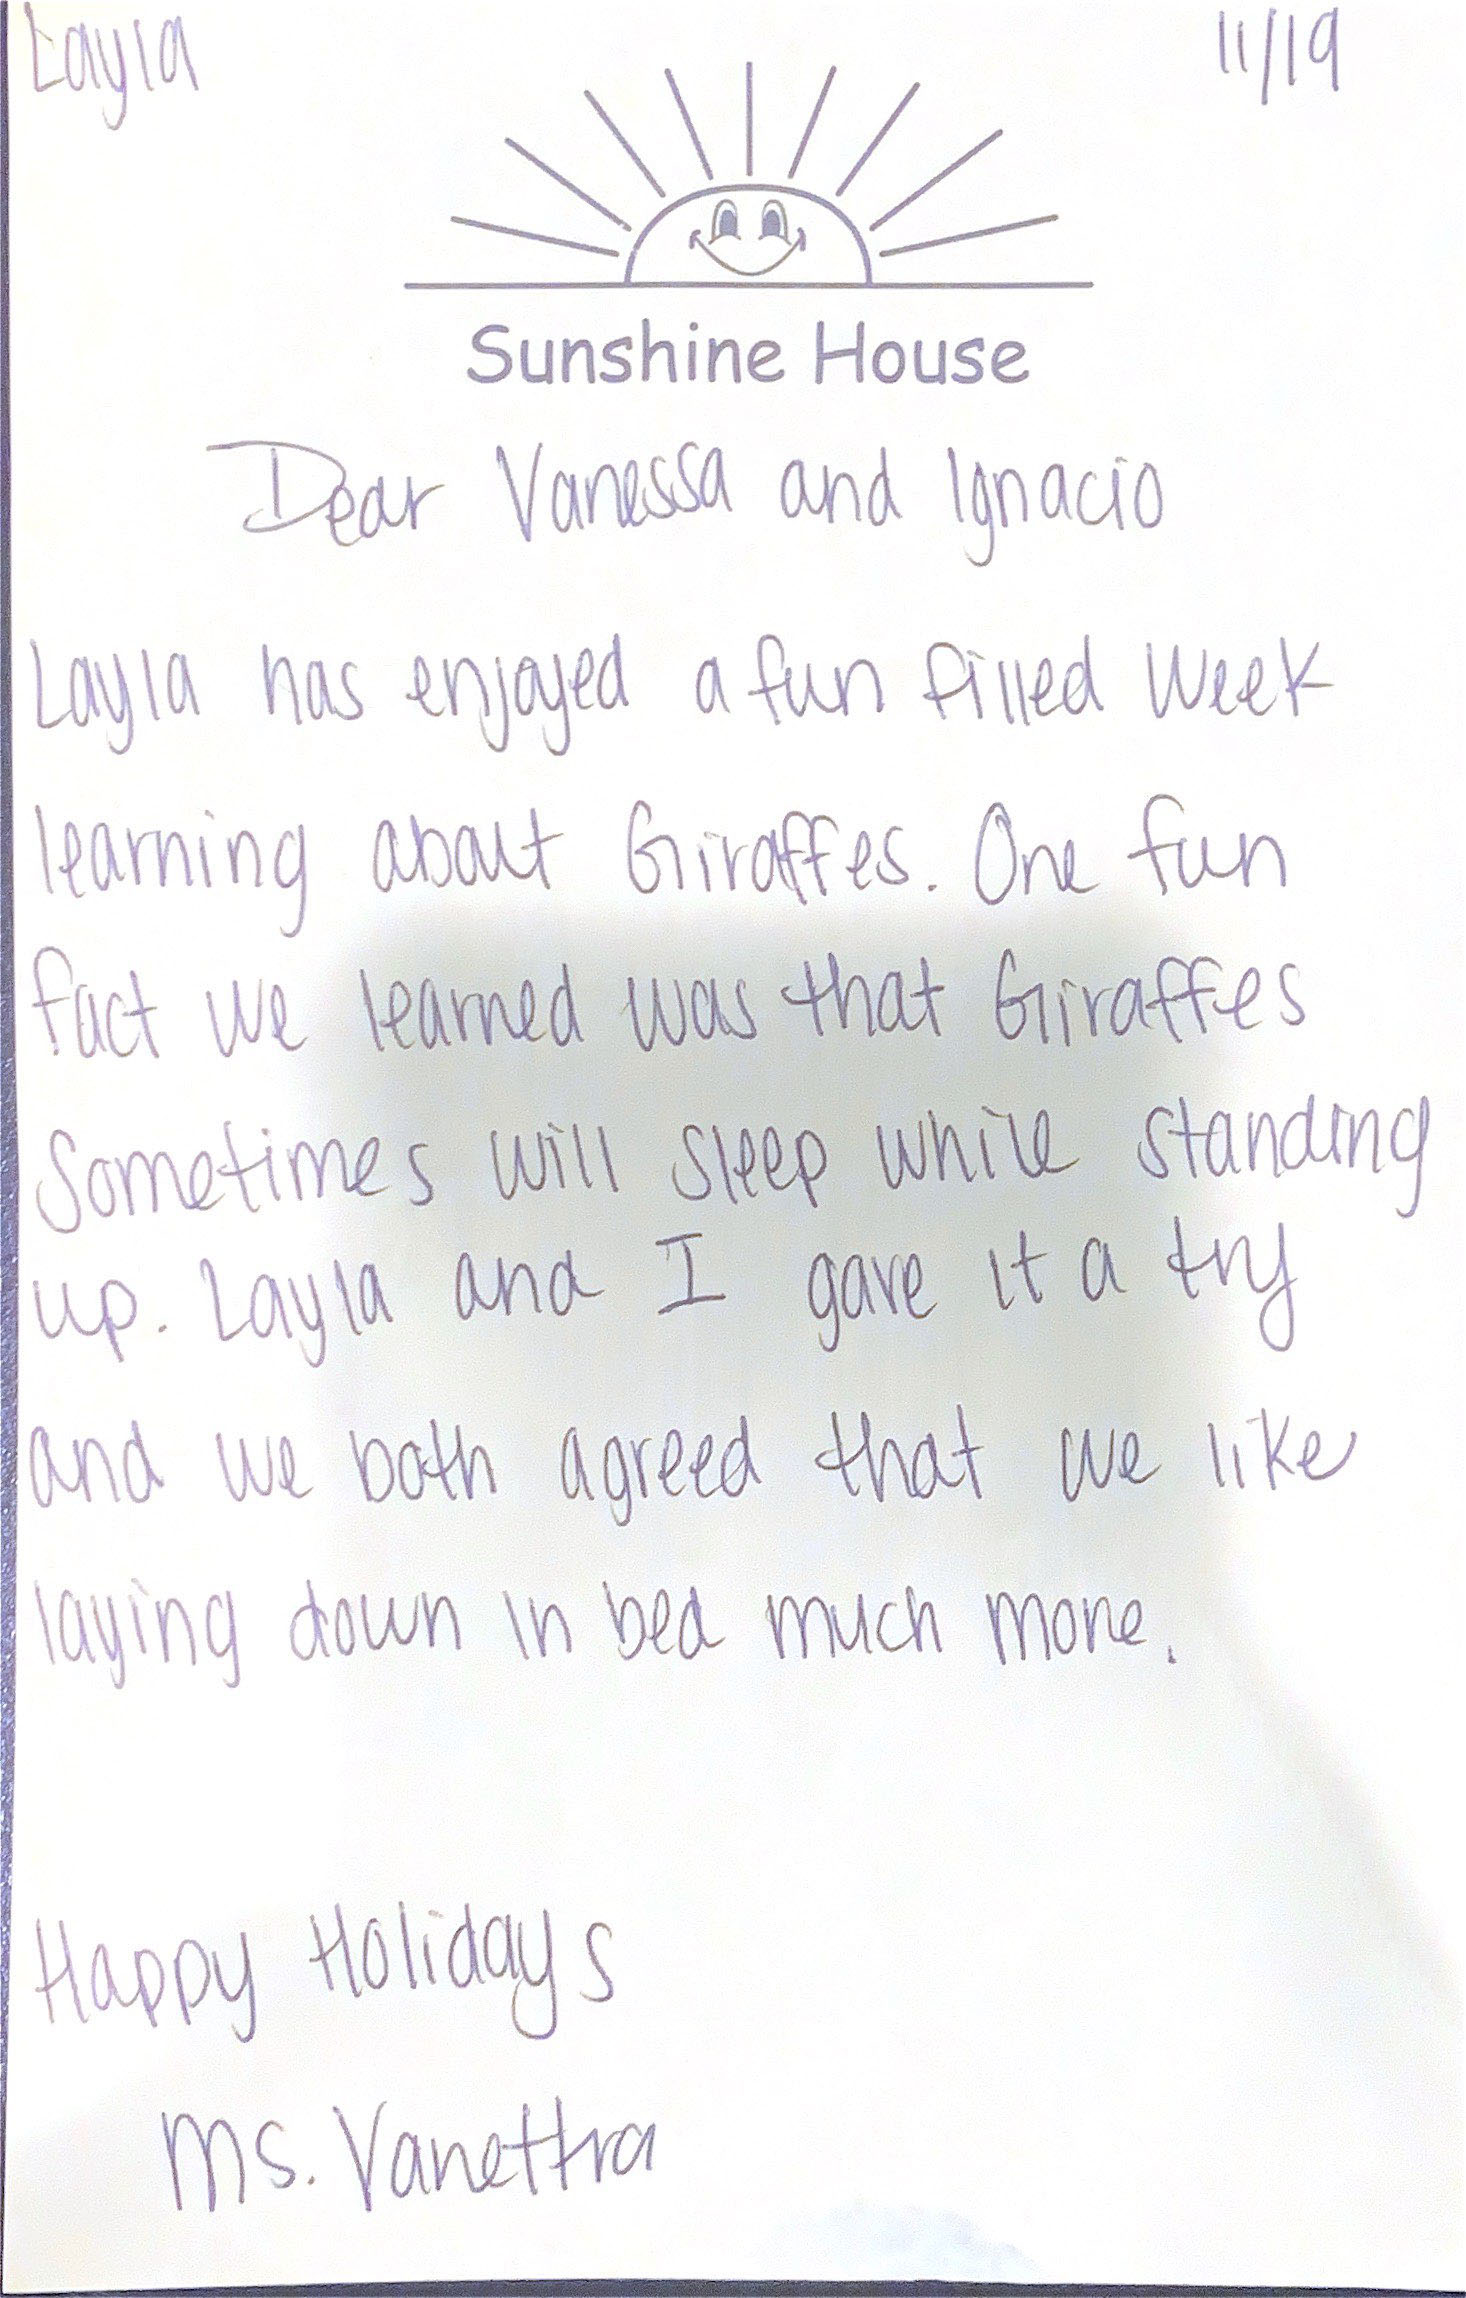 Layla 11/19
Sunshine House
Dear Vanessa and Ignacio
Layla has enjoyed a fun filled week
learning about Giraffes. One fun
fact we learned was that Giraffes
Sometimes will sleep while standing
up. Layla and I gave it a try
and we both agreed that we like
laying down in bed much more.
Happy Holidays
Ms. Vanettra